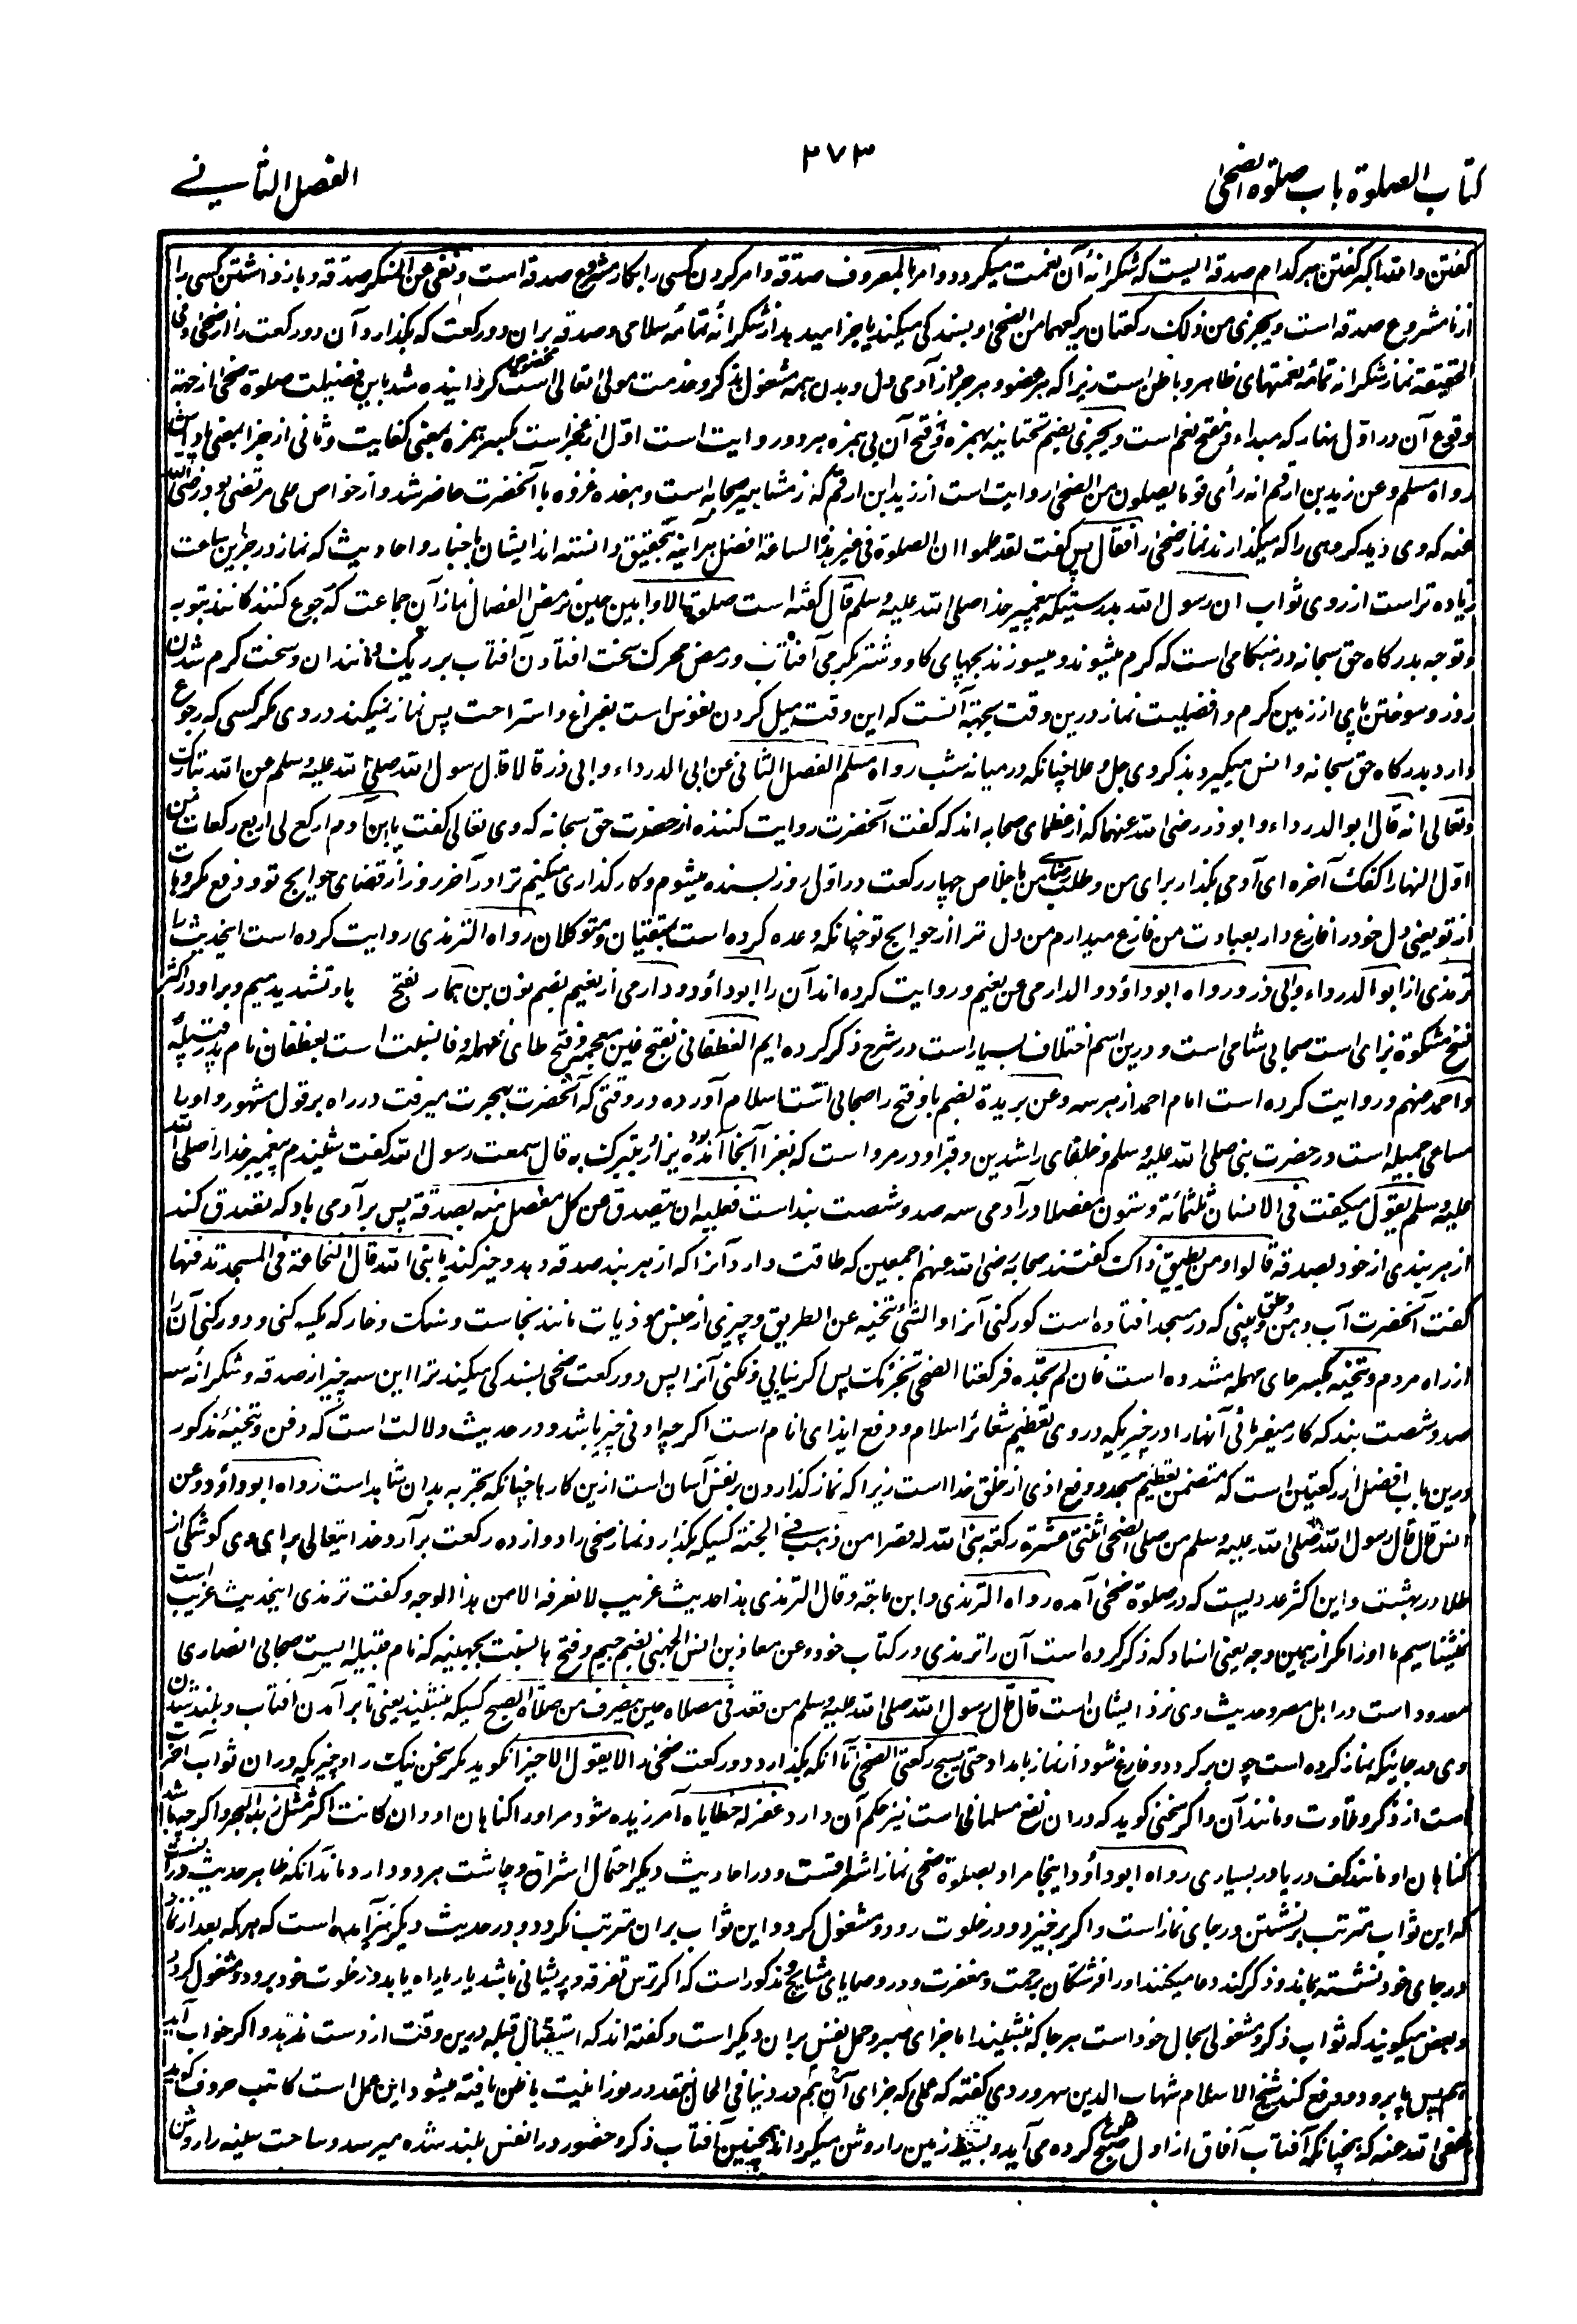 کتاب الصلوة باب صلوة الضحی
۲۷۳
الفصل الثانی
گفتن و الله اکبر گفتن هر کدام صدقه ایست که شکرانهٔ آن نعمت میگردد و امر بالمعروف صدقة و امر کردن کسی را بکار مشروع صدقه است و نهی عن المنکر صدقة و باز داشتن کسی را
از نامشروع صدقه است و یجزی من ذلک رکعتان یرکعهما من الضحی و بسندگی میکند یا جزا میدهد از شکرانهٔ تمامهٔ سلامی و صدقه بران دو رکعت که بگذارد آن دو رکعت را از ضحی و فی
الحقیقة نماز شکرانه تمامه نعمتهای ظاهر و باطن است زیرا که هر عضو و هر جزء از آدمی دل و بدن همه مشغول بذکر و خدمت مولی تعالی است مخصوص گردانیده شد باین فضیلت صلوة ضحی از جهة
وقوع آن در اول نهار که مبداء و مفتح نعم است و یجزی بضم تحتانیه بهمزه و فتح آن بی همزه هر دو روایت است اول از اجزاست بکسر همزه بمعنی کفایت و ثانی از جزا بمعنی پاداش
رواه مسلم و عن زید بن ارقم انه رأی قوما یصلون من الضحی روایت است از زید ابن ارقم که از مشاهیر صحابه است و هفده غزوه با آنحضرت حاضر شد و از خواص علی مرتضی بود رضی الله
عنه که وی دید گروهی را که میگذارند نماز ضحی را فقال پس گفت لقد علموا ان الصلوة فی غیر هذه الساعة افضل هر آینه بتحقیق دانسته اند ایشان باخبار و احادیث که نماز در جز این ساعت
زیاده تر است از روی ثواب ان رسول الله بدرستیکه پیغمبر خدا صلی الله علیه وسلم قال گفته است صلوة الاوابین حین ترمض الفصال نماز آن جماعت که رجوع کنندگانند بتوبه
و توجه بدرگاه حق سبحانه در هنگامی است که گرم میشوند و میسوزند بچهای گاو و شتر بگرمی آفتاب و رمض محرک سخت افتادن آفتاب بر ریگ و مانند آن و سخت گرم شدن
روز و سوختن پای از زمین گرم و افضلیت نماز درین وقت بجهة آنست که این وقت میل کردن نفوس است بفراغ و استراحت پس نماز نمیکند در وی مگر کسی که رجوع
دارد بدرگاه حق سبحانه و انس میگیرد بذکر وی جل و علا چنانکه در میانه شب رواه مسلم الفصل الثانی عن ابی الدرداء و ابی ذر قالا قال رسول الله صلی الله علیه وسلم عن الله تبارک
و تعالی انه قال ابو الدرداء و ابو ذر رضی الله عنهما که از عظمای صحابه اند که گفت آنحضرت روایت کننده از حضرت حق سبحانه که وی تعالی گفت یا ابن آدم ارکع لی اربع رکعات من
اول النهار اکفک آخره ای آدمی بگذار برای من و طلب رضای من باخلاص چهار رکعت در اول روز بسنده میشوم و کارگذاری میکنم ترا در آخر روز از قضای حوایج تو و دفع مکروهات
از تو یعنی دل خود را فارغ دار بعبادت من فارغ میدارم من دل ترا از حوایج تو چنانکه وعده کرده است بمتقیان و متوکلان رواه الترمذی روایت کرده است اینحدیث را
ترمذی از ابو الدرداء و ابی ذر و رواه ابو داؤد و الدارمی عن نعیم و روایت کرده اند آن را ابو داؤد و دارمی از نعیم بضم نون بن همار بفتح ها و تشدید میم و برا در اکثر
نسخ مشکوة بزای است صحابی شامی است و درین اسم اختلاف بسیار است در شرح ذکر کرده ایم الغطفانی بفتح غین معجمه و فتح طای مهمله و فا نسبت است بغطفان نام پدر قبیله
و احمد عنهم و روایت کرده است امام احمد از هر سه و عن بریدة بضم با و فتح را صحابی است اسلام آورده در وقتی که آنحضرت بهجرت میرفت در راه بر قول مشهور و او را
مساعی جمیله است در حضرت نبی صلی الله علیه وسلم و خلفای راشدین و قبر او در مرو است که بغزا آنجا آمده بود یزار و یتبرک به قال سمعت رسول الله گفت شنیدم پیغمبر خدا را صلی الله
علیه وسلم یقول میگفت فی الانسان ثلثمائة و ستون مفصلا در آدمی سه صد و شصت بند است فعلیه ان یتصدق عن کل مفصل منه بصدقة پس بر آدمی باد که تصدق کند
از هر بندی از خود بصدقه قالوا و من یطیق ذلک گفتند صحابه رضی الله عنهم اجمعین که طاقت دارد آنرا که از هر بند صدقه دهد و چیز کند یا نبی الله قال النخاعة فی المسجد تدفنها
گفت آنحضرت آب دهن و حلق و بینی که در مسجد افتاده است گور کنی آنرا و الشئ تنحیه عن الطریق و چیزی از جنس موذیات مانند نجاست و سنگ و خار که یکسو کنی و دور کنی آن را
از راه مردم و تنحیه بکسر حای مهمله مشدده است فان لم تجد فرکعتا الضحی تجزئک پس اگر نیابی و نکنی آنرا پس دو رکعت ضحی بسندگی میکند ترا این سه چیز از صدقه و شکرانهٔ سه
صد و شصت بند که کار میفرمائی آنها را در چیزیکه در وی تعظیم شعائر اسلام و دفع ایذای انام است اگرچه ادنی چیز باشد و در حدیث دلالت است که دفن و تنحیهٔ مذکور
درین باب افضل از رکعتین است که متضمن تعظیم مسجد و دفع اذی از خلق خدا است زیرا که نماز گذاردن بر نفس آسان است ازین کارها چنانکه تجربه بدان شاهد است رواه ابو داؤد و عن
انس قال قال رسول الله صلی الله علیه وسلم من صلی الضحی اثنتی عشرة رکعة بنی الله له قصرا من ذهب فی الجنة کسیکه بگذارد نماز ضحی را دوازده رکعت برآرد خدایتعالی برای وی کوشکی از
طلا در بهشت و این اکثر عدد یست که در صلوة ضحی آمده رواه الترمذی و ابن ماجة و قال الترمذی هذا حدیث غریب لا نعرفه الا من هذا الوجه و گفت ترمذی اینحدیث غریب است
نمیشناسیم ما او را مگر از همین وجه یعنی اسناد که ذکر کرده است آن را ترمذی در کتاب خود و عن معاذ بن انس الجهنی بضم جیم و فتح ها نسبت بجهینه که نام قبیله ایست صحابی انصاری
معدود است در اهل مصر و حدیث وی نزد ایشان است قال قال رسول الله صلی الله علیه وسلم من قعد فی مصلاه حین ینصرف من صلوة الصبح کسیکه بنشیند یعنی تا برآمدن آفتاب و بلند شدن
وی در جاییکه نماز کرده است چون برگردد و فارغ شود از نماز بامداد حتی یسبح رکعتی الضحی تا آنکه بگذارد دو رکعت ضحی را لا یقول الا خیرا نگوید مگر سخن نیک را و چیزیکه دران ثواب آخرت
است از ذکر و تلاوت و مانند آن و اگر سخنی گوید که دران نفع مسلمانی است نیز حکم آن دارد غفر له خطایاه آمرزیده شود مر او را گناهان او و ان کانت اکثر من زبد البحر و اگرچه باشد
گناهان او مانند کف دریا در بسیاری رواه ابو داؤد و اینجا مراد بصلوة ضحی نماز اشراقست و در احادیث دیگر احتمال اشراق و چاشت هر دو دارد و مانا که ظاهر حدیث در آنست
که این ثواب مترتب بر نشستن در جای نماز است و اگر برخیزد و در خلوت رود و مشغول گردد این ثواب بران مترتب نگردد و در حدیث دیگر نیز آمده است که هر که بعد از نماز
در جای خود نشسته بماند و ذکر کند دعا میکنند او را فرشتگان برحمت و مغفرت و در وصایای مشایخ مذکور است که اگر ترس تفرقه و پریشانی باشد یا ریا راه یابد در خلوت خود برود و مشغول گردد
و بعض میگویند که ثواب ذکر و مشغولی بحال خود است هر جا که نشیند اما جزای صبر و حمل نفس بران دیگر است و گفته اند که استقبال قبله درین وقت از دست ندهد و اگر خواب آید
هم پس پا برود و دفع کند شیخ الاسلام شهاب الدین سهروردی گفته که عملی که جزای آن هم در دنیا فی الحال نقد در نورانیت باطن یافته میشود این عمل است کاتب حروف گوید
عفی الله عنه که همچنانکه آفتاب آفاق از اول صبح طلوع کرده می آید و بسیط زمین را روشن میگرداند همچنین آفتاب ذکر و حضور در انفس بلند شده میرسد و ساحت سینه را روشن